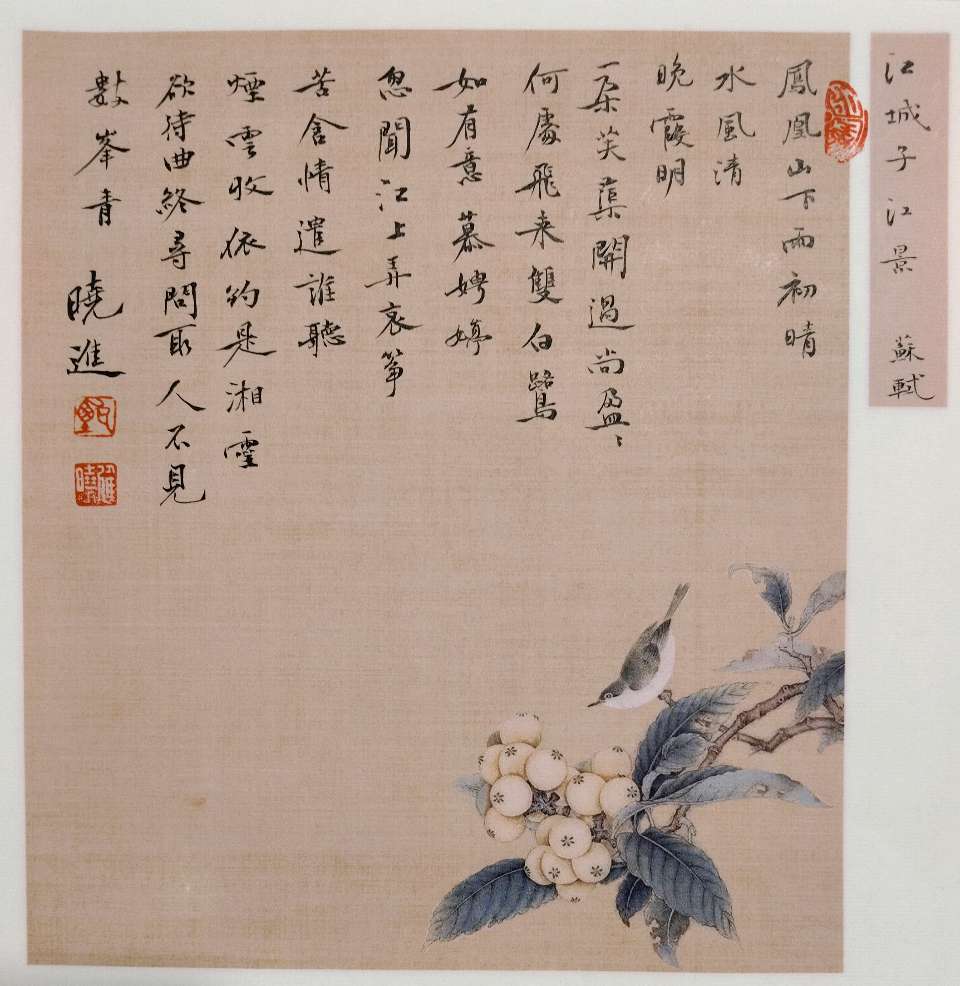 江城子 江景 蘇軾
鳳凰山下雨初晴
水風清
晚霞明
一朵芙蕖開過尚盈〻
何處飛来雙白鷺
如有意慕娉婷
忽聞江上弄哀箏
苦含情遣誰聽
煙雲收依約是湘靈
欲待曲終尋問取人不見
數峯青 曉進